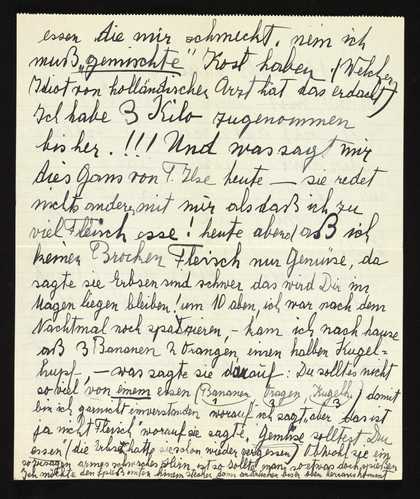 essen die mir schmeckt, nein ich
muß „gemischte" Kost haben, (Welcher
Idiot von holländischer Arzt hat das erdacht)
Ich habe 3 Kilo zugenommen
bisher. !!! Und was sagt mir
dies Gans von T. Ilse heute — sie redet
nichts anderes mit mir als daß ich zu
viel Fleisch esse! heute abend aß ich
keinen Brocken Fleisch nur Gemüse, da
sagte sie Erbsen sind schwer das wird Dir im
Magen liegen bleiben! um 10 aben, ich war nach dem
Nachtmal noch spatzieren, – kam ich nach hause
aß 3 Bananen 2 Orangen einen halben Kugel-
hupf, – was sagte sie darauf: Du solltest nicht
so viel von einem essen (Bananen Oragen, Kugelh.) damit
bin ich garnicht einverstanden worauf ich sagt „aber das ist
ja nicht Fleisch" worauf sie sagte, Gemüse solltest Du
essen" (die Erbsen hatte sie schon wieder vergessen) Obwohl sie ein
sozusagen armes schwaches ist so sollte man so etwas doch
Ich möchte den